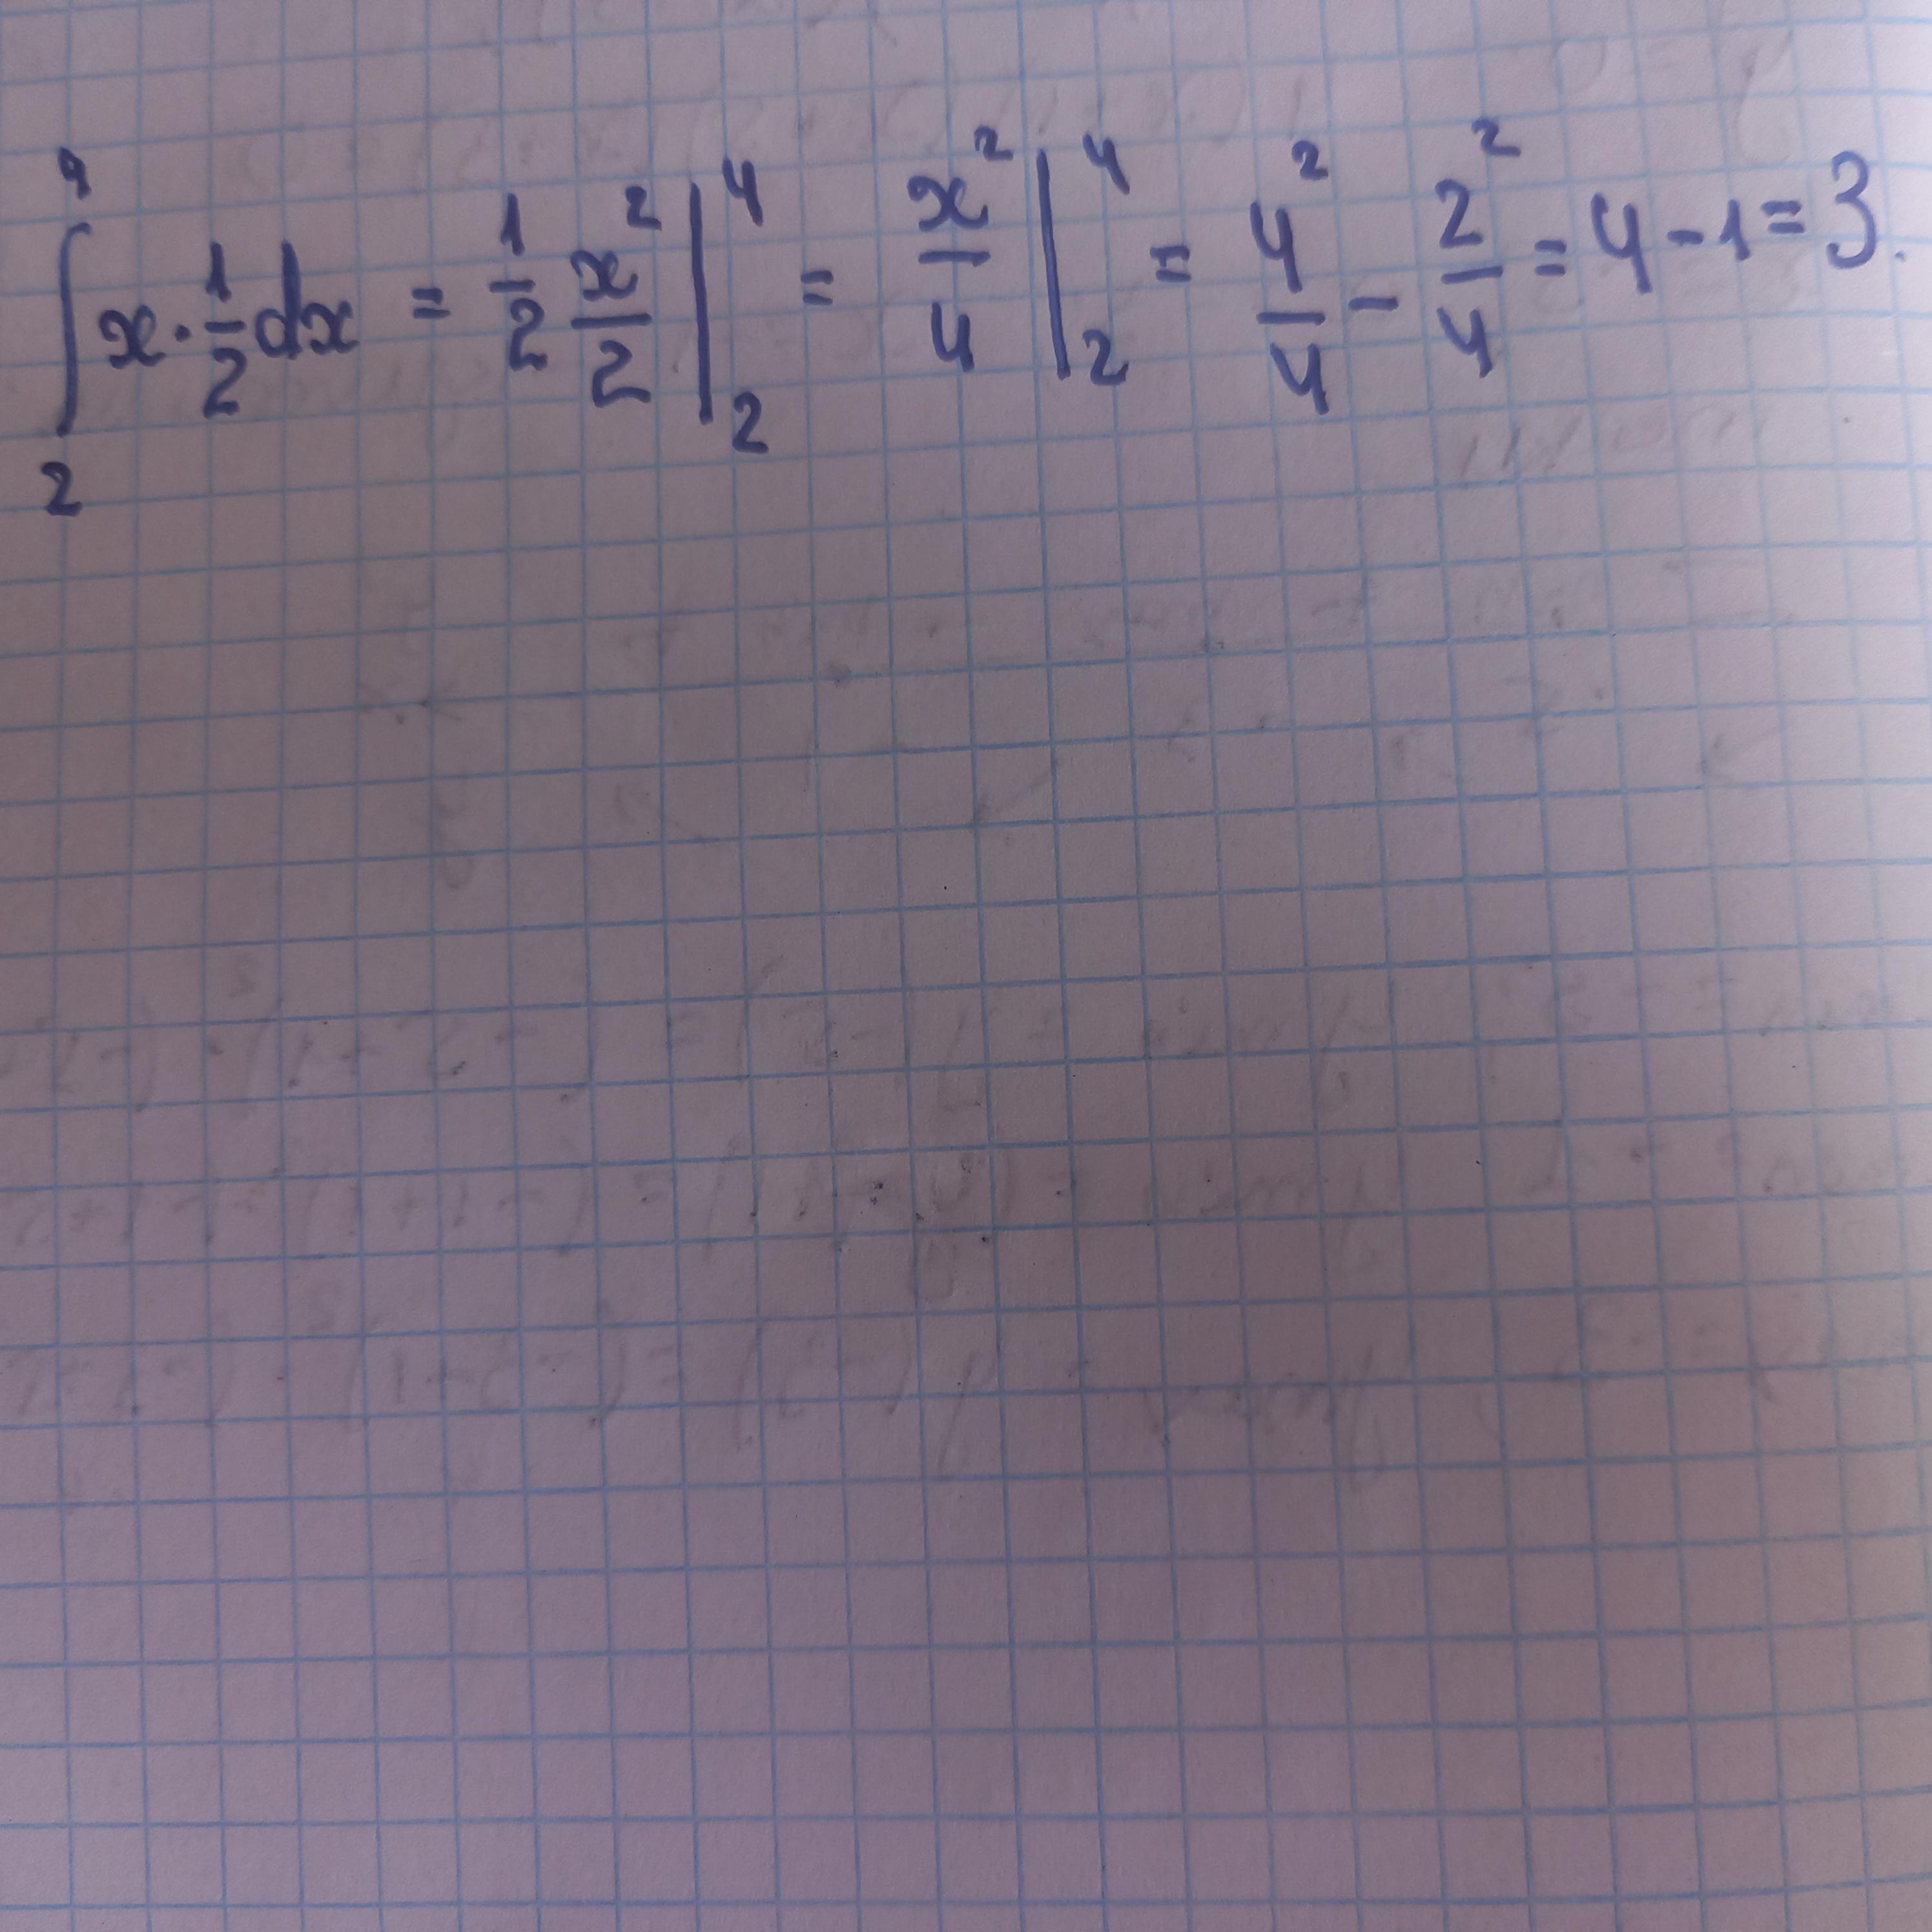 ∫₂⁴ x · 1/2 dx = 1/2 x²/2 |₂⁴ = x²/4 |₂⁴ = 4²/4 - 2²/4 = 4 - 1 = 3.